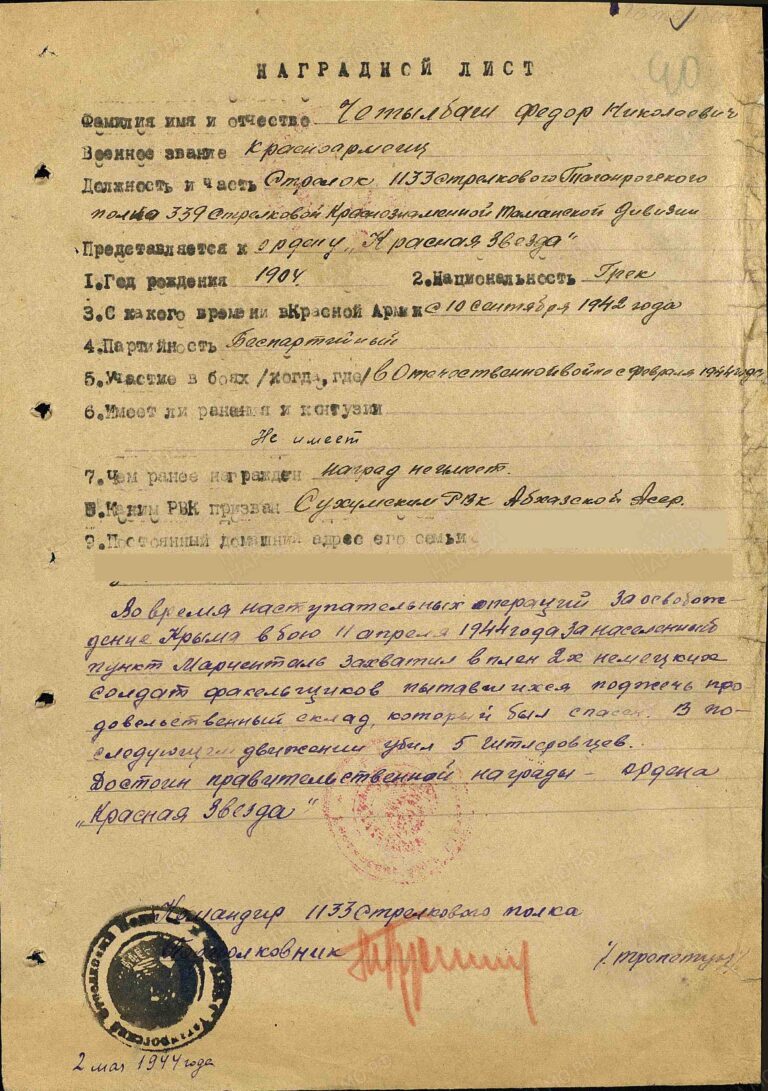 40
НАГРАДНОЙ ЛИСТ
Фамилия имя и отчество Четылбаш Федор Николаевич
Военное звание Красноармеец
Должность и часть Стрелок 1133 стрелкового Таганрогского
полка 339 Стрелковой Краснознаменной Таманской дивизии
Представляется к ордену „Красная Звезда"
1.Год рождения 1904. 2.Национальность Грек
3.С какого времени вКрасной Армии с 10 сентября 1942 года
4.Партийность Беспартийный
5.Участие в боях /когда, где/ в Отечественной войне с февраля 1944 года
6.Имеет ли ранения и контузии
Не имеет
7.Чем ранее награжден наград не имеет.
8.Каким РВК призван Сухумским РВК Абхазской Асср.
9.Постоянный домашний адрес его семьи
Во время наступательных операций за освобож-
дение Крыма в бою 11 апреля 1944 года за населенный
пункт Мариенталь захватил в плен 2х немецких
солдат факельщиков пытавшихся поджечь про
довольственный склад, который был спасен. В по-
следующем движении убил 5 гитлеровцев.
Достоин правительственной награды - ордена
„Красная Звезда"
Командир 1133 Стрелкового полка
Подполковник
2 мая 1944 года